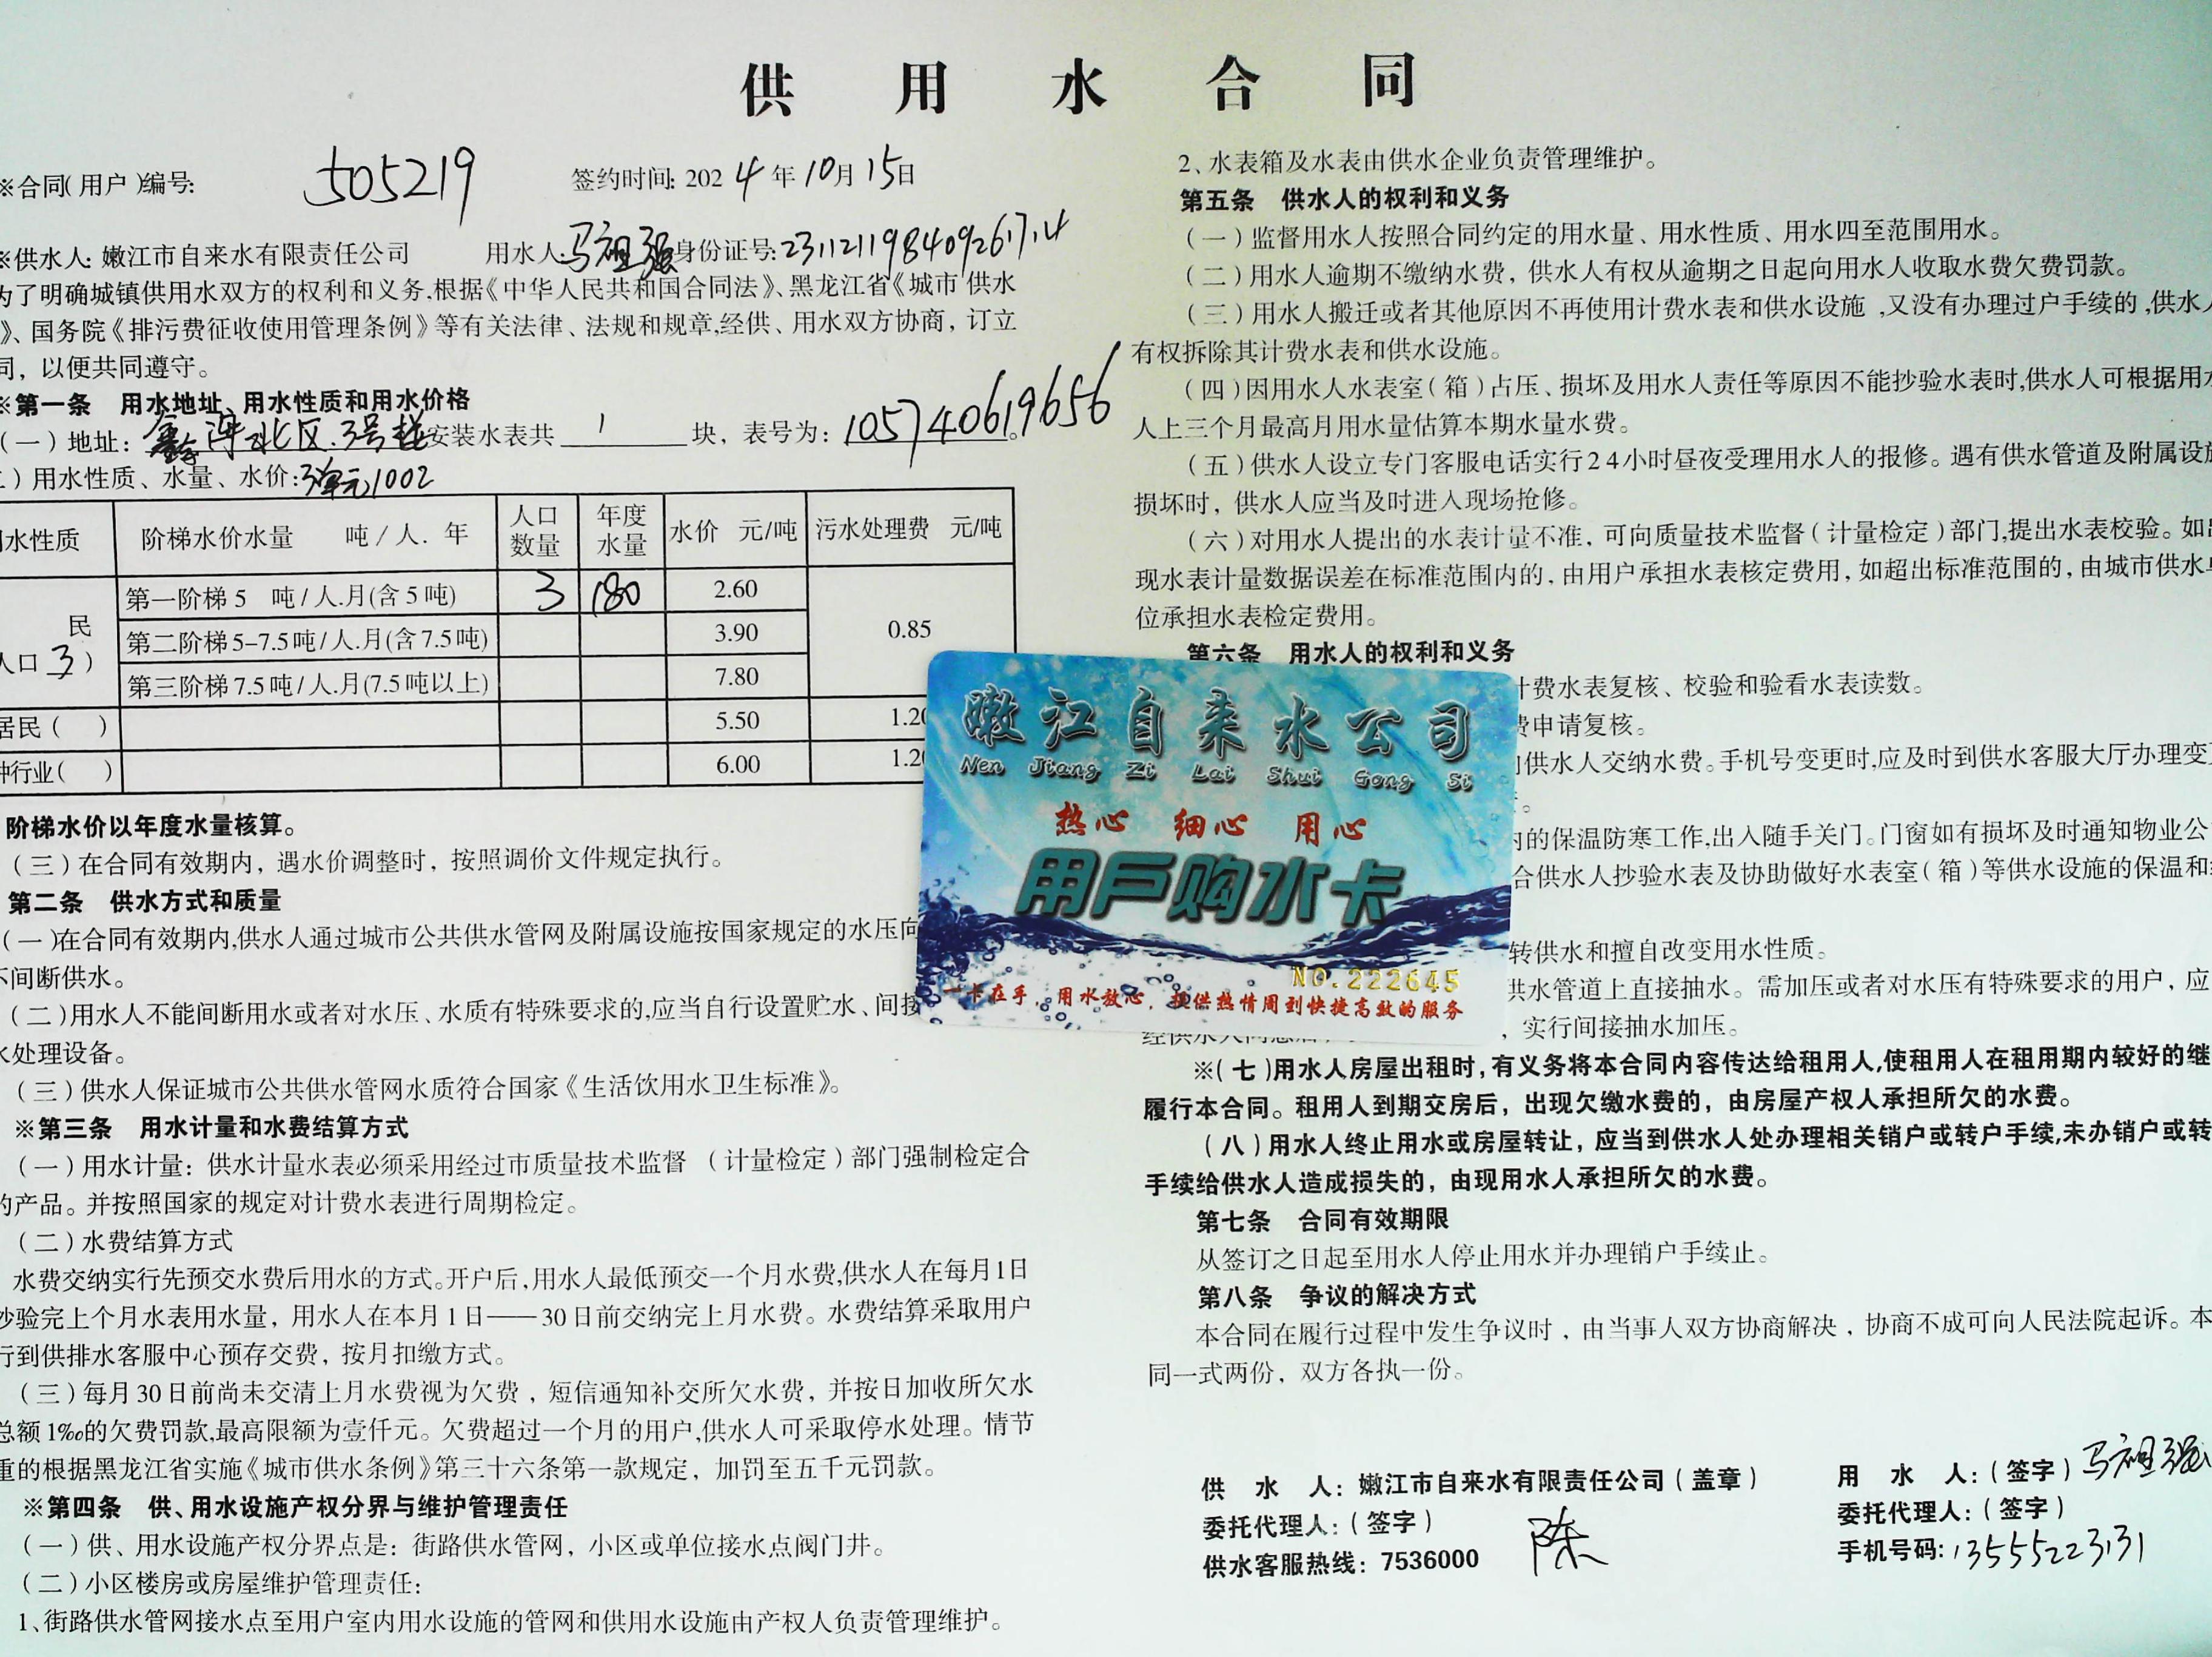 供用水合同
※合同(用户)编号: 505219 签约时间: 2024年10月15日
※供水人: 嫩江市自来水有限责任公司 用水人: 马祖强 身份证号: 231121198409261714
为了明确城镇供用水双方的权利和义务,根据《中华人民共和国合同法》、黑龙江省《城市供水
》、国务院《排污费征收使用管理条例》等有关法律、法规和规章,经供、用水双方协商，订立
同，以便共同遵守。
※第一条 用水地址、用水性质和用水价格
(一)地址: 北区.3号楼 安装水表共 1 块，表号为: 105740619656。
)用水性质、水量、水价: 3单元1002
水性质 阶梯水价水量 吨/人.年 人口数量 年度水量 水价 元/吨 污水处理费 元/吨
民 第一阶梯5 吨/人.月(含5吨) 3 180 2.60 0.85
人口3) 第二阶梯5-7.5吨/人.月(含7.5吨) 3.90
第三阶梯7.5吨/人.月(7.5吨以上) 7.80
居民( ) 5.50 1.20
种行业( ) 6.00 1.20
阶梯水价以年度水量核算。
(三)在合同有效期内，遇水价调整时，按照调价文件规定执行。
第二条 供水方式和质量
(一)在合同有效期内,供水人通过城市公共供水管网及附属设施按国家规定的水压向
不间断供水。
(二)用水人不能间断用水或者对水压、水质有特殊要求的,应当自行设置贮水、间接
水处理设备。
(三)供水人保证城市公共供水管网水质符合国家《生活饮用水卫生标准》。
※第三条 用水计量和水费结算方式
(一)用水计量：供水计量水表必须采用经过市质量技术监督 (计量检定)部门强制检定合
的产品。并按照国家的规定对计费水表进行周期检定。
(二)水费结算方式
水费交纳实行先预交水费后用水的方式。开户后,用水人最低预交一个月水费,供水人在每月1日
抄验完上个月水表用水量，用水人在本月1日——30日前交纳完上月水费。水费结算采取用户
行到供排水客服中心预存交费，按月扣缴方式。
(三)每月30日前尚未交清上月水费视为欠费，短信通知补交所欠水费，并按日加收所欠水
总额1‰的欠费罚款,最高限额为壹仟元。欠费超过一个月的用户,供水人可采取停水处理。情节
重的根据黑龙江省实施《城市供水条例》第三十六条第一款规定，加罚至五千元罚款。
※第四条 供、用水设施产权分界与维护管理责任
(一)供、用水设施产权分界点是：街路供水管网，小区或单位接水点阀门井。
(二)小区楼房或房屋维护管理责任:
1、街路供水管网接水点至用户室内用水设施的管网和供用水设施由产权人负责管理维护。
2、水表箱及水表由供水企业负责管理维护。
第五条 供水人的权利和义务
(一)监督用水人按照合同约定的用水量、用水性质、用水四至范围用水。
(二)用水人逾期不缴纳水费，供水人有权从逾期之日起向用水人收取水费欠费罚款。
(三)用水人搬迁或者其他原因不再使用计费水表和供水设施,又没有办理过户手续的,供水人
有权拆除其计费水表和供水设施。
(四)因用水人水表室(箱)占压、损坏及用水人责任等原因不能抄验水表时,供水人可根据用水
人上三个月最高月用水量估算本期水量水费。
(五)供水人设立专门客服电话实行24小时昼夜受理用水人的报修。遇有供水管道及附属设施
损坏时，供水人应当及时进入现场抢修。
(六)对用水人提出的水表计量不准，可向质量技术监督(计量检定)部门,提出水表校验。如出
现水表计量数据误差在标准范围内的,由用户承担水表核定费用,如超出标准范围的,由城市供水单
位承担水表检定费用。
第六条 用水人的权利和义务
计费水表复核、校验和验看水表读数。
费申请复核。
供水人交纳水费。手机号变更时,应及时到供水客服大厅办理变更
。
内的保温防寒工作,出入随手关门。门窗如有损坏及时通知物业公
合供水人抄验水表及协助做好水表室(箱)等供水设施的保温和
转供水和擅自改变用水性质。
供水管道上直接抽水。需加压或者对水压有特殊要求的用户，应
经供水人同意后，实行间接抽水加压。
※(七)用水人房屋出租时,有义务将本合同内容传达给租用人,使租用人在租用期内较好的继
履行本合同。租用人到期交房后，出现欠缴水费的，由房屋产权人承担所欠的水费。
(八)用水人终止用水或房屋转让，应当到供水人处办理相关销户或转户手续,未办销户或转
手续给供水人造成损失的，由现用水人承担所欠的水费。
第七条 合同有效期限
从签订之日起至用水人停止用水并办理销户手续止。
第八条 争议的解决方式
本合同在履行过程中发生争议时，由当事人双方协商解决，协商不成可向人民法院起诉。本
同一式两份，双方各执一份。
供 水 人：嫩江市自来水有限责任公司(盖章)
委托代理人：(签字) 陈
供水客服热线：7536000
用 水 人：(签字) 马祖强
委托代理人：(签字)
手机号码: 13555223131
嫩江自来水公司
Nen Jiang Zi Lai Shui Gong Si
热心 细心 用心
用户购水卡
NO.222645
一卡在手，用水放心，提供热情周到快捷高效的服务